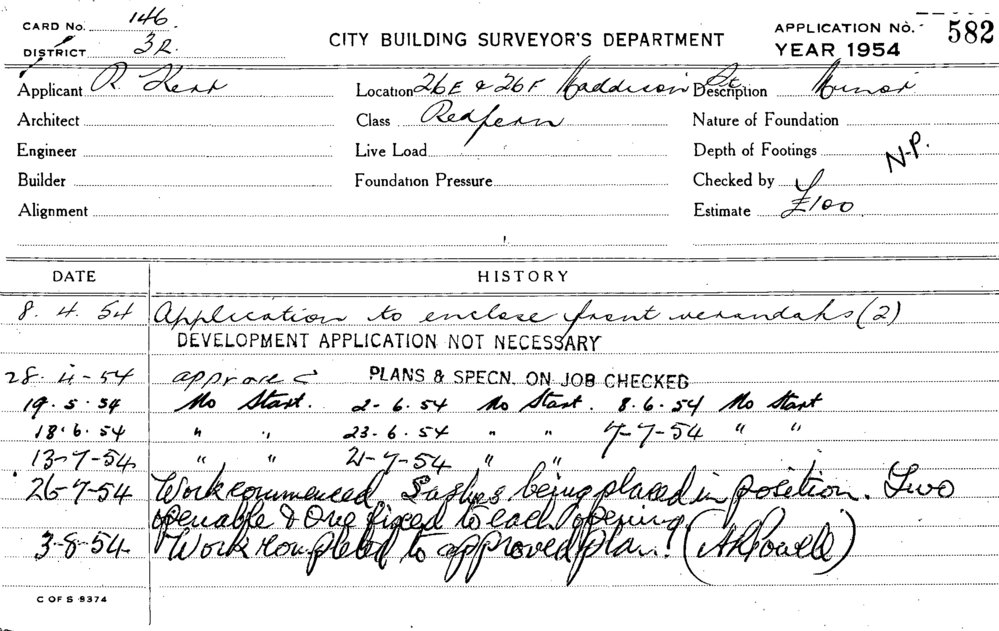 CARD No. 146
DISTRICT 3R.
CITY BUILDING SURVEYOR'S DEPARTMENT
APPLICATION No. 582
YEAR 1954
Applicant R. Kerr Location 26E & 26F Maddison St Description Minor
Architect Class Redfern Nature of Foundation
Engineer Live Load Depth of Footings N.P.
Builder Foundation Pressure Checked by
Alignment Estimate £100
DATE HISTORY
8. 4. 54 Application to enclose front verandahs (2)
DEVELOPMENT APPLICATION NOT NECESSARY
28-4-54 approved PLANS & SPECN. ON JOB CHECKED
19.5.54 No Start. 2-6.54 No Start. 8.6.54 No Start
18.6.54 " " 23-6.54 " " 7-7-54 " "
13-7-54 " " 21-7-54 " "
26-7-54 Work commenced. Sashes being placed in position. Two
openable & One fixed to each opening.
3-8-54 Work completed to approved plan. (A R Powell)
C OF S 9374